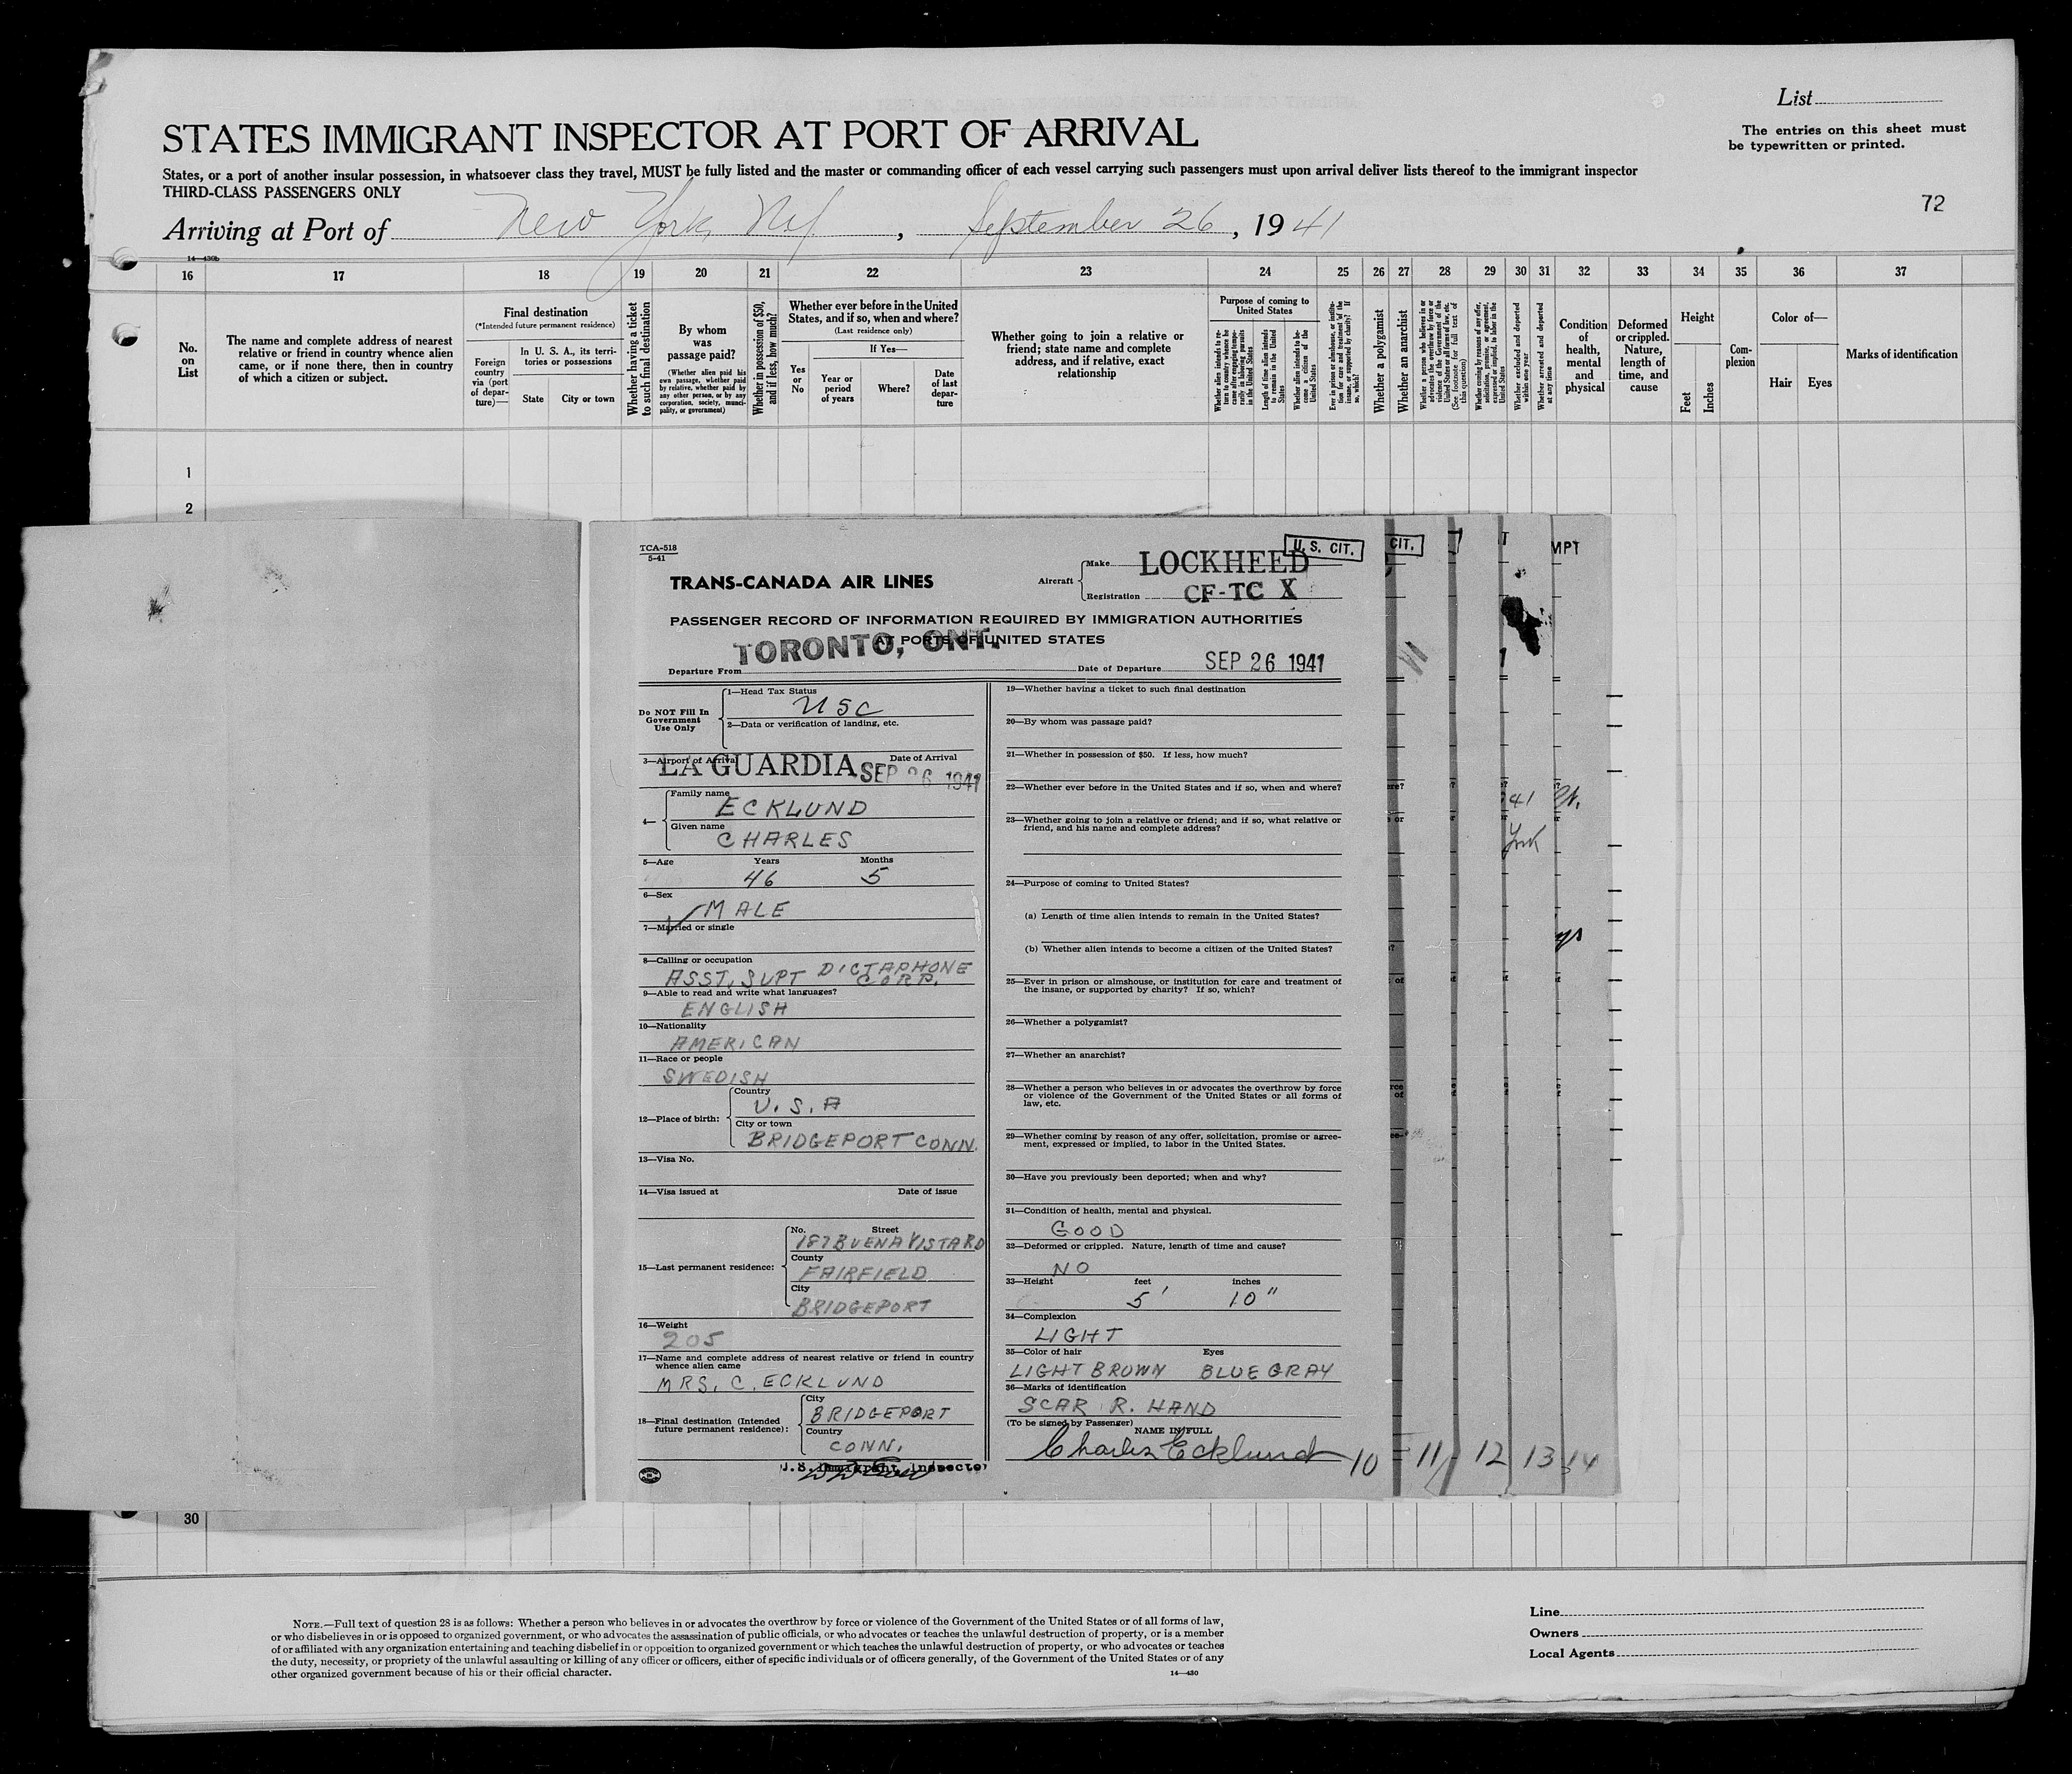 List
STATES IMMIGRANT INSPECTOR AT PORT OF ARRIVAL
The entries on this sheet must
be typewritten or printed.
States, or a port of another insular possession, in whatsoever class they travel, MUST be fully listed and the master or commanding officer of each vessel carrying such passengers must upon arrival deliver lists thereof to the immigrant inspector
THIRD-CLASS PASSENGERS ONLY
72
Arriving at Port of New York, NY, September 26, 1941
14—430b
16 17 18 19 20 21 22 23 24 25 26 27 28 29 30 31 32 33 34 35 36 37
No.
on
List
The name and complete address of nearest
relative or friend in country whence alien
came, or if none there, then in country
of which a citizen or subject.
Final destination
(*Intended future permanent residence)
Foreign
country
via (port
of depar-
ture)—
In U. S. A., its terri-
tories or possessions
State
City or town
Whether having a ticket
to such final destination
By whom
was
passage paid?
(Whether alien paid his
own passage, whether paid
by relative, whether paid by
any other person, or by any
corporation, society, munici-
pality, or government)
Whether in possession of $50,
and if less, how much?
Whether ever before in the United
States, and if so, when and where?
(Last residence only)
If Yes—
Yes
or
No
Year or
period
of years
Where?
Date
of last
depar-
ture
Whether going to join a relative or
friend; state name and complete
address, and if relative, exact
relationship
Purpose of coming to
United States
Length of time alien intends
to remain in the United
States
Whether alien intends to be-
come a citizen of the
United States
Ever in prison or almshouse, or institu-
tion for care and treatment of the
insane, or supported by charity? If
so, which?
Whether a polygamist
Whether an anarchist
Whether a person who believes in or
advocates the overthrow by force or
violence of the Government of the
United States or all forms of law, etc.
(See footnote for full text of
this question)
Whether coming by reasons of any offer,
solicitation, promise, or agreement,
expressed or implied, to labor in the
United States
Whether excluded and deported
within one year
Whether arrested and deported
at any time
Condition
of
health,
mental
and
physical
Deformed
or crippled.
Nature,
length of
time, and
cause
Height
Feet
Inches
Com-
plexion
Color of—
Hair
Eyes
Marks of identification
1
2
TCA-518
5-41
TRANS-CANADA AIR LINES
Aircraft
Make LOCKHEED
Registration CF-TC X
U. S. CIT.
CIT.
MPT
PASSENGER RECORD OF INFORMATION REQUIRED BY IMMIGRATION AUTHORITIES
AT PORTS OF UNITED STATES
Departure From TORONTO, ONT.
Date of Departure SEP 26 1941
Do NOT Fill In
Government
Use Only
1—Head Tax Status
USC
2—Data or verification of landing, etc.
3—Airport of Arrival LA GUARDIA
Date of Arrival SEP 26 1941
4—
Family name
ECKLUND
Given name
CHARLES
5—Age Years Months
46 5
6—Sex
MALE
7—Married or single
8—Calling or occupation
ASST. SUPT DICTAPHONE
CORP.
9—Able to read and write what languages?
ENGLISH
10—Nationality
AMERICAN
11—Race or people
SWEDISH
12—Place of birth:
Country
U.S.A
City or town
BRIDGEPORT CONN.
13—Visa No.
14—Visa issued at Date of issue
15—Last permanent residence:
No. Street
187 BUENA VISTA RD
County
FAIRFIELD
City
BRIDGEPORT
16—Weight
205
17—Name and complete address of nearest relative or friend in country
whence alien came
MRS. C. ECKLUND
18—Final destination (Intended
future permanent residence):
City
BRIDGEPORT
Country
CONN.
U.S. Immigrant Inspector
19—Whether having a ticket to such final destination
20—By whom was passage paid?
21—Whether in possession of $50. If less, how much?
22—Whether ever before in the United States and if so, when and where?
23—Whether going to join a relative or friend; and if so, what relative or
friend, and his name and complete address?
24—Purpose of coming to United States?
(a) Length of time alien intends to remain in the United States?
(b) Whether alien intends to become a citizen of the United States?
25—Ever in prison or almshouse, or institution for care and treatment of
the insane, or supported by charity? If so, which?
26—Whether a polygamist?
27—Whether an anarchist?
28—Whether a person who believes in or advocates the overthrow by force
or violence of the Government of the United States or all forms of
law, etc.
29—Whether coming by reason of any offer, solicitation, promise or agree-
ment, expressed or implied, to labor in the United States.
30—Have you previously been deported; when and why?
31—Condition of health, mental and physical.
GOOD
32—Deformed or crippled. Nature, length of time and cause?
NO
33—Height feet inches
5' 10"
34—Complexion
LIGHT
35—Color of hair Eyes
LIGHT BROWN BLUE GRAY
36—Marks of identification
SCAR R. HAND
(To be signed by Passenger)
NAME IN FULL
Charles Ecklund
10 11 12 13 14
41
York
30
NOTE.—Full text of question 28 is as follows: Whether a person who believes in or advocates the overthrow by force or violence of the Government of the United States or of all forms of law,
or who disbelieves in or is opposed to organized government, or who advocates the assassination of public officials, or who advocates or teaches the unlawful destruction of property, or is a member
of or affiliated with any organization entertaining and teaching disbelief in or opposition to organized government or which teaches the unlawful destruction of property, or who advocates or teaches
the duty, necessity, or propriety of the unlawful assaulting or killing of any officer or officers, either of specific individuals or of officers generally, of the Government of the United States or of any
other organized government because of his or their official character.
14—430
Line
Owners
Local Agents